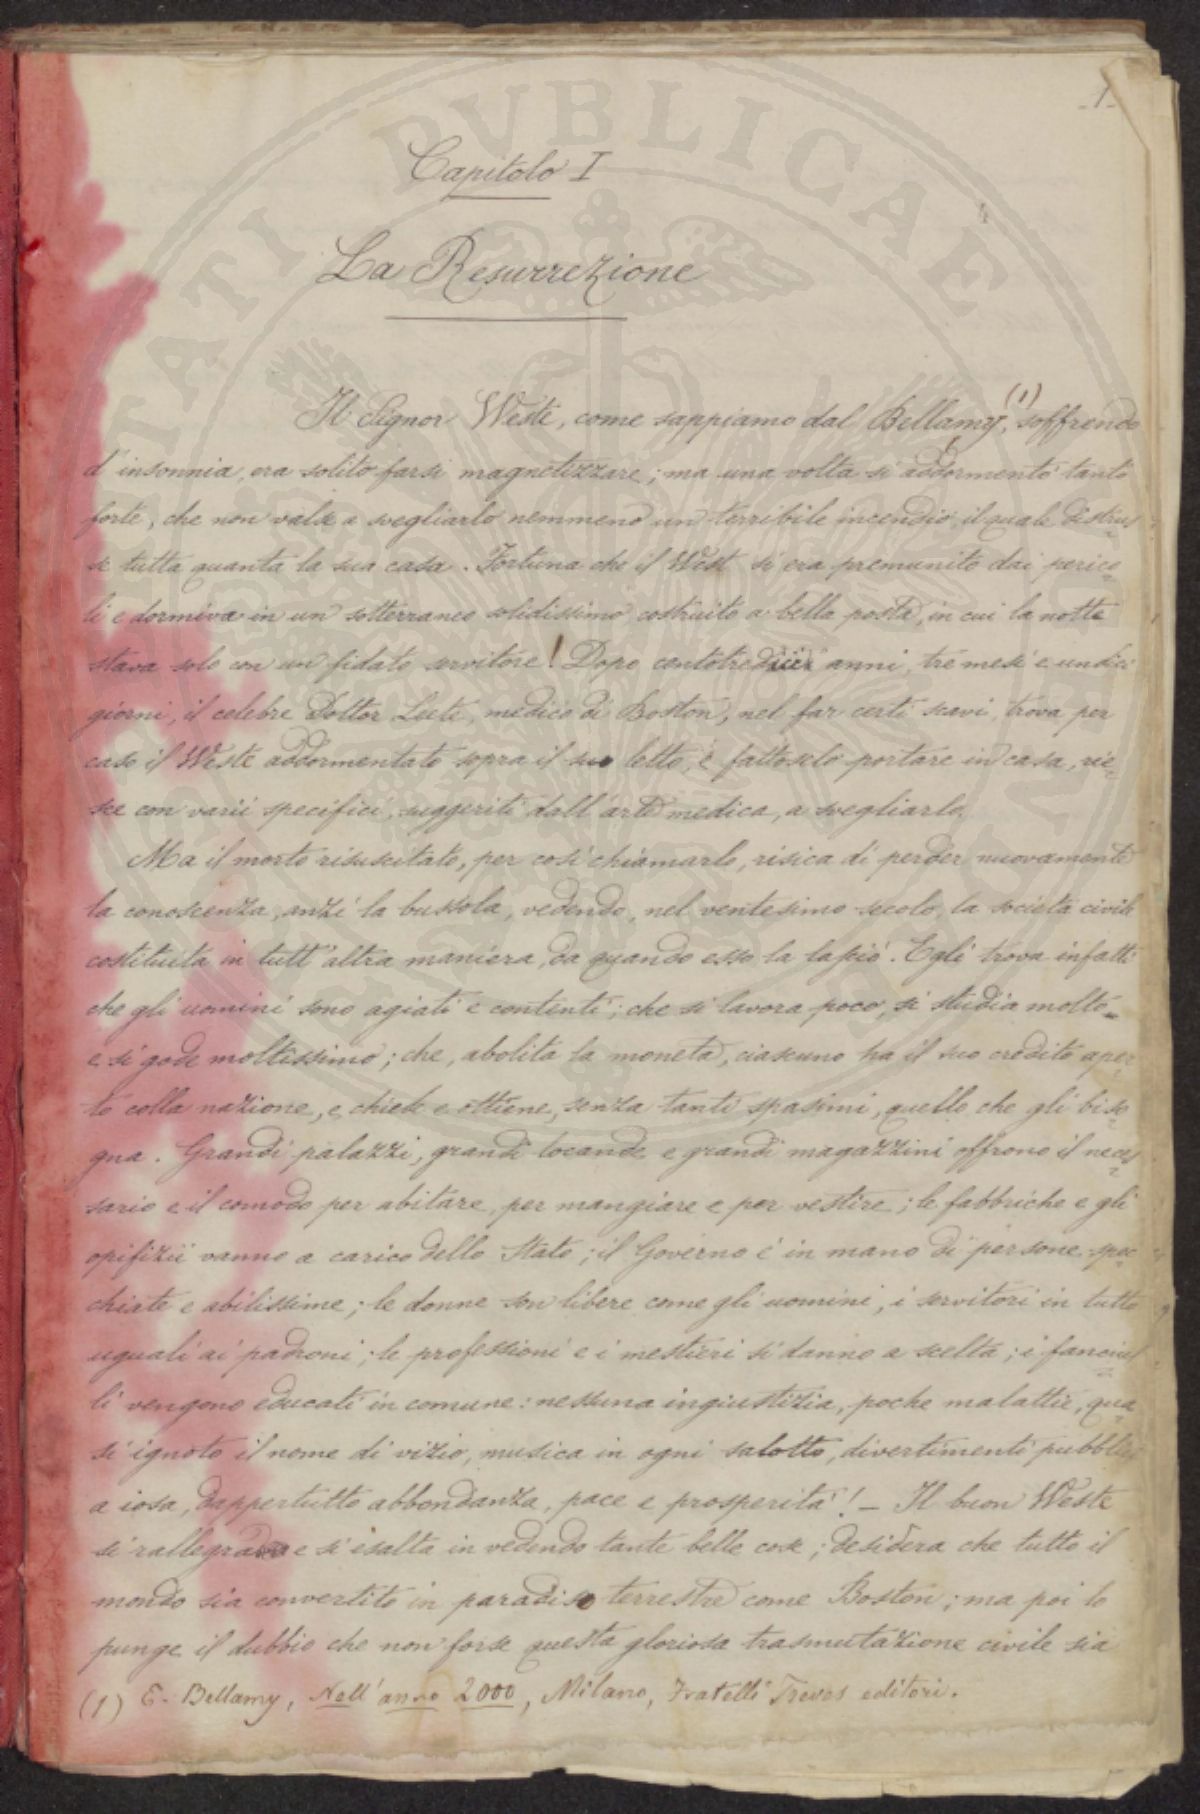 -1-
Capitolo I
La Resurrezione
Il Signor Weste, come sappiamo dal Bellamy,(1) soffrendo
d'insonnia, era solito farsi magnetizzare; ma una volta si addormentò tanto
forte, che non valse a svegliarlo nemmeno un terribile incendio, il quale distrus-
se tutta quanta la sua casa. Fortuna che il West si era premunito dai perico-
li e dormiva in un sotterraneo solidissimo costruito a bella posta, in cui la notte
stava solo con un fidato servitore! Dopo centotredici anni, tre mesi e undici
giorni, il celebre Dottor Leete, medico di Boston, nel far certi scavi, trova per
caso il Weste addormentato sopra il suo letto, e fattoselo portare in casa, rie-
sce con varii specifici, suggeriti dall'arte medica, a svegliarlo.
Ma il morto risuscitato, per così chiamarlo, risica di perder nuovamente
la conoscenza, anzi la bussola, vedendo, nel ventesimo secolo, la società civile
costituita in tutt'altra maniera, da quando esso la lasciò. Egli trova infatti
che gli uomini sono agiati e contenti; che si lavora poco, si studia molto
e si gode moltissimo; che, abolita la moneta, ciascuno ha il suo credito aper-
to colla nazione, e chiede e ottiene, senza tanti spasimi, quello che gli biso-
gna. Grandi palazzi, grandi locande e grandi magazzini offrono il neces-
sario e il comodo per abitare, per mangiare e per vestire; le fabbriche e gli
opifizii vanno a carico dello Stato; il Governo è in mano di persone spec-
chiate e abilissime; le donne son libere come gli uomini, i servitori in tutto
uguali ai padroni; le professioni e i mestieri si danno a scelta; i fanciul-
li vengono educati in comune: nessuna ingiustizia, poche malattie, qua-
si ignoto il nome di vizio, musica in ogni salotto, divertimenti pubblici
a iosa, dappertutto abbondanza, pace e prosperità! — Il buon Weste
si rallegra e s'esalta in vedendo tante belle cose; desidera che tutto il
mondo sia convertito in paradiso terrestre come Boston; ma poi lo
punge il dubbio che non forse questa gloriosa trasmutazione civile sia
(1) E. Bellamy, Nell'anno 2000, Milano, Fratelli Treves editori.